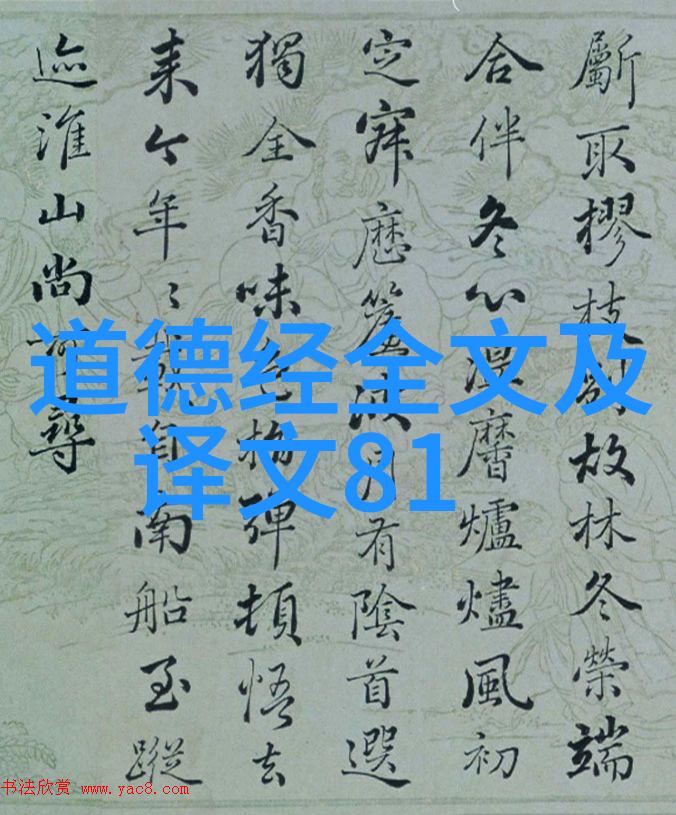 斸取樛枝故林冬榮端
合伴冬心爐燼風初
定寂歷月有陰首選
獨全香味色彈頓悟去
来今年〻載自南船至蹤
迹淮山尚可尋
道德经全文及
译文81
书法欣赏 www.yac8.com